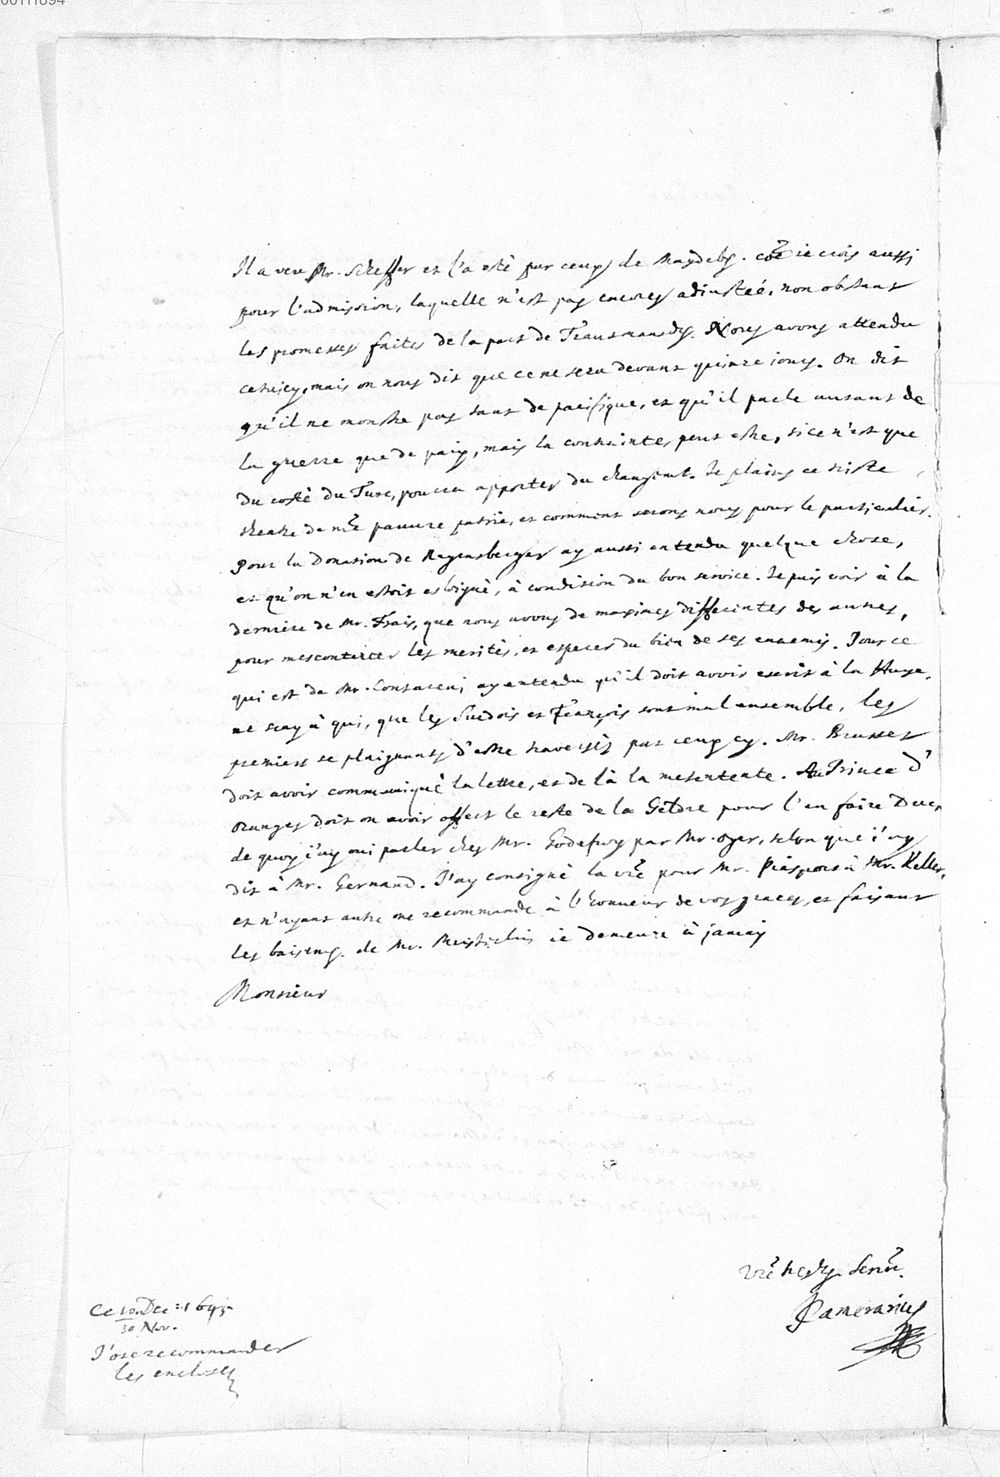 00111894
Il a veu Mr. Scheffer et l'a esté par ceux de Magdebg. coe ie crois aussi
pour l'admission, laquelle n'est pas encores adiustée, non obstant
les promesses faites de la part de Trautmansdg. Nous avons attendu
cestuicy, mais on nous dit que ce ne sera devant quinze iours. On dit
qu'il ne monstre pas tant de pacifique, et qu'il parle autant de
la guerre que de paix, mais la contrainte, peut estre, si ce n'est que
du costé du Turc, pourra apporter du changemt. Je plains ce triste
theatre de nre pauvre patrie, et comment serons nous pour le particulier.
Pour la Donation de Regensberger ay aussi entendu quelque chose,
et qu'on n'en estoit esloigné, à condition du bon service. Je puis voir à la
derniere de Mr. Frais, que nous avons de maximes differentes des autres,
pour mescontenter les merités, et esperer du bien de ses ennemis. Pour ce
qui est de Mr. ay entendu qu'il doit avoir escrit à la Haye,
ne scay à qui, que les Suedois et François sont mal ensemble, les
premiers se plaignants d'estre traversés par ceux cy. Mr. Brasset
doit avoir communiqué la lettre, et de là la mesentente. Au Prince d'
Oranges doit on avoir offert le reste de la Geldre pour l'en faire Duc,
de quoy i'ay oui parler chez Mr. Godefroy par Mr. oyer, selon que i'ay
dit à Mr. Gernand. J'ay consigné la vre pour Mr. Piaspord à Mr. Keller,
et n'ayant autre me recommande à l'honneur de vos graces, et faisant
les baisemg. de Mr. ie demeure à jamais
Monsieur
Vre Serre.
Camerarius
Ce 10. Dec: 1645
30 Nov.
J'ose recommander
les encloses